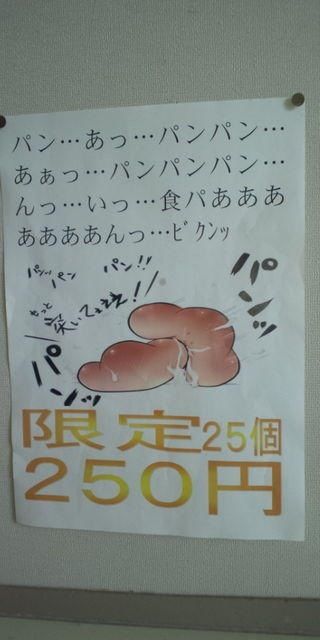 パン…あっ…パンパン…
あぁっ…パンパンパン…
んっ…いっ…食パあああ
ああああんっ…ﾋﾞｸﾝｯ
パンッ パン パン!!
パンッ
もっと
突いてェェ!!
パンッ
限定25個
250円